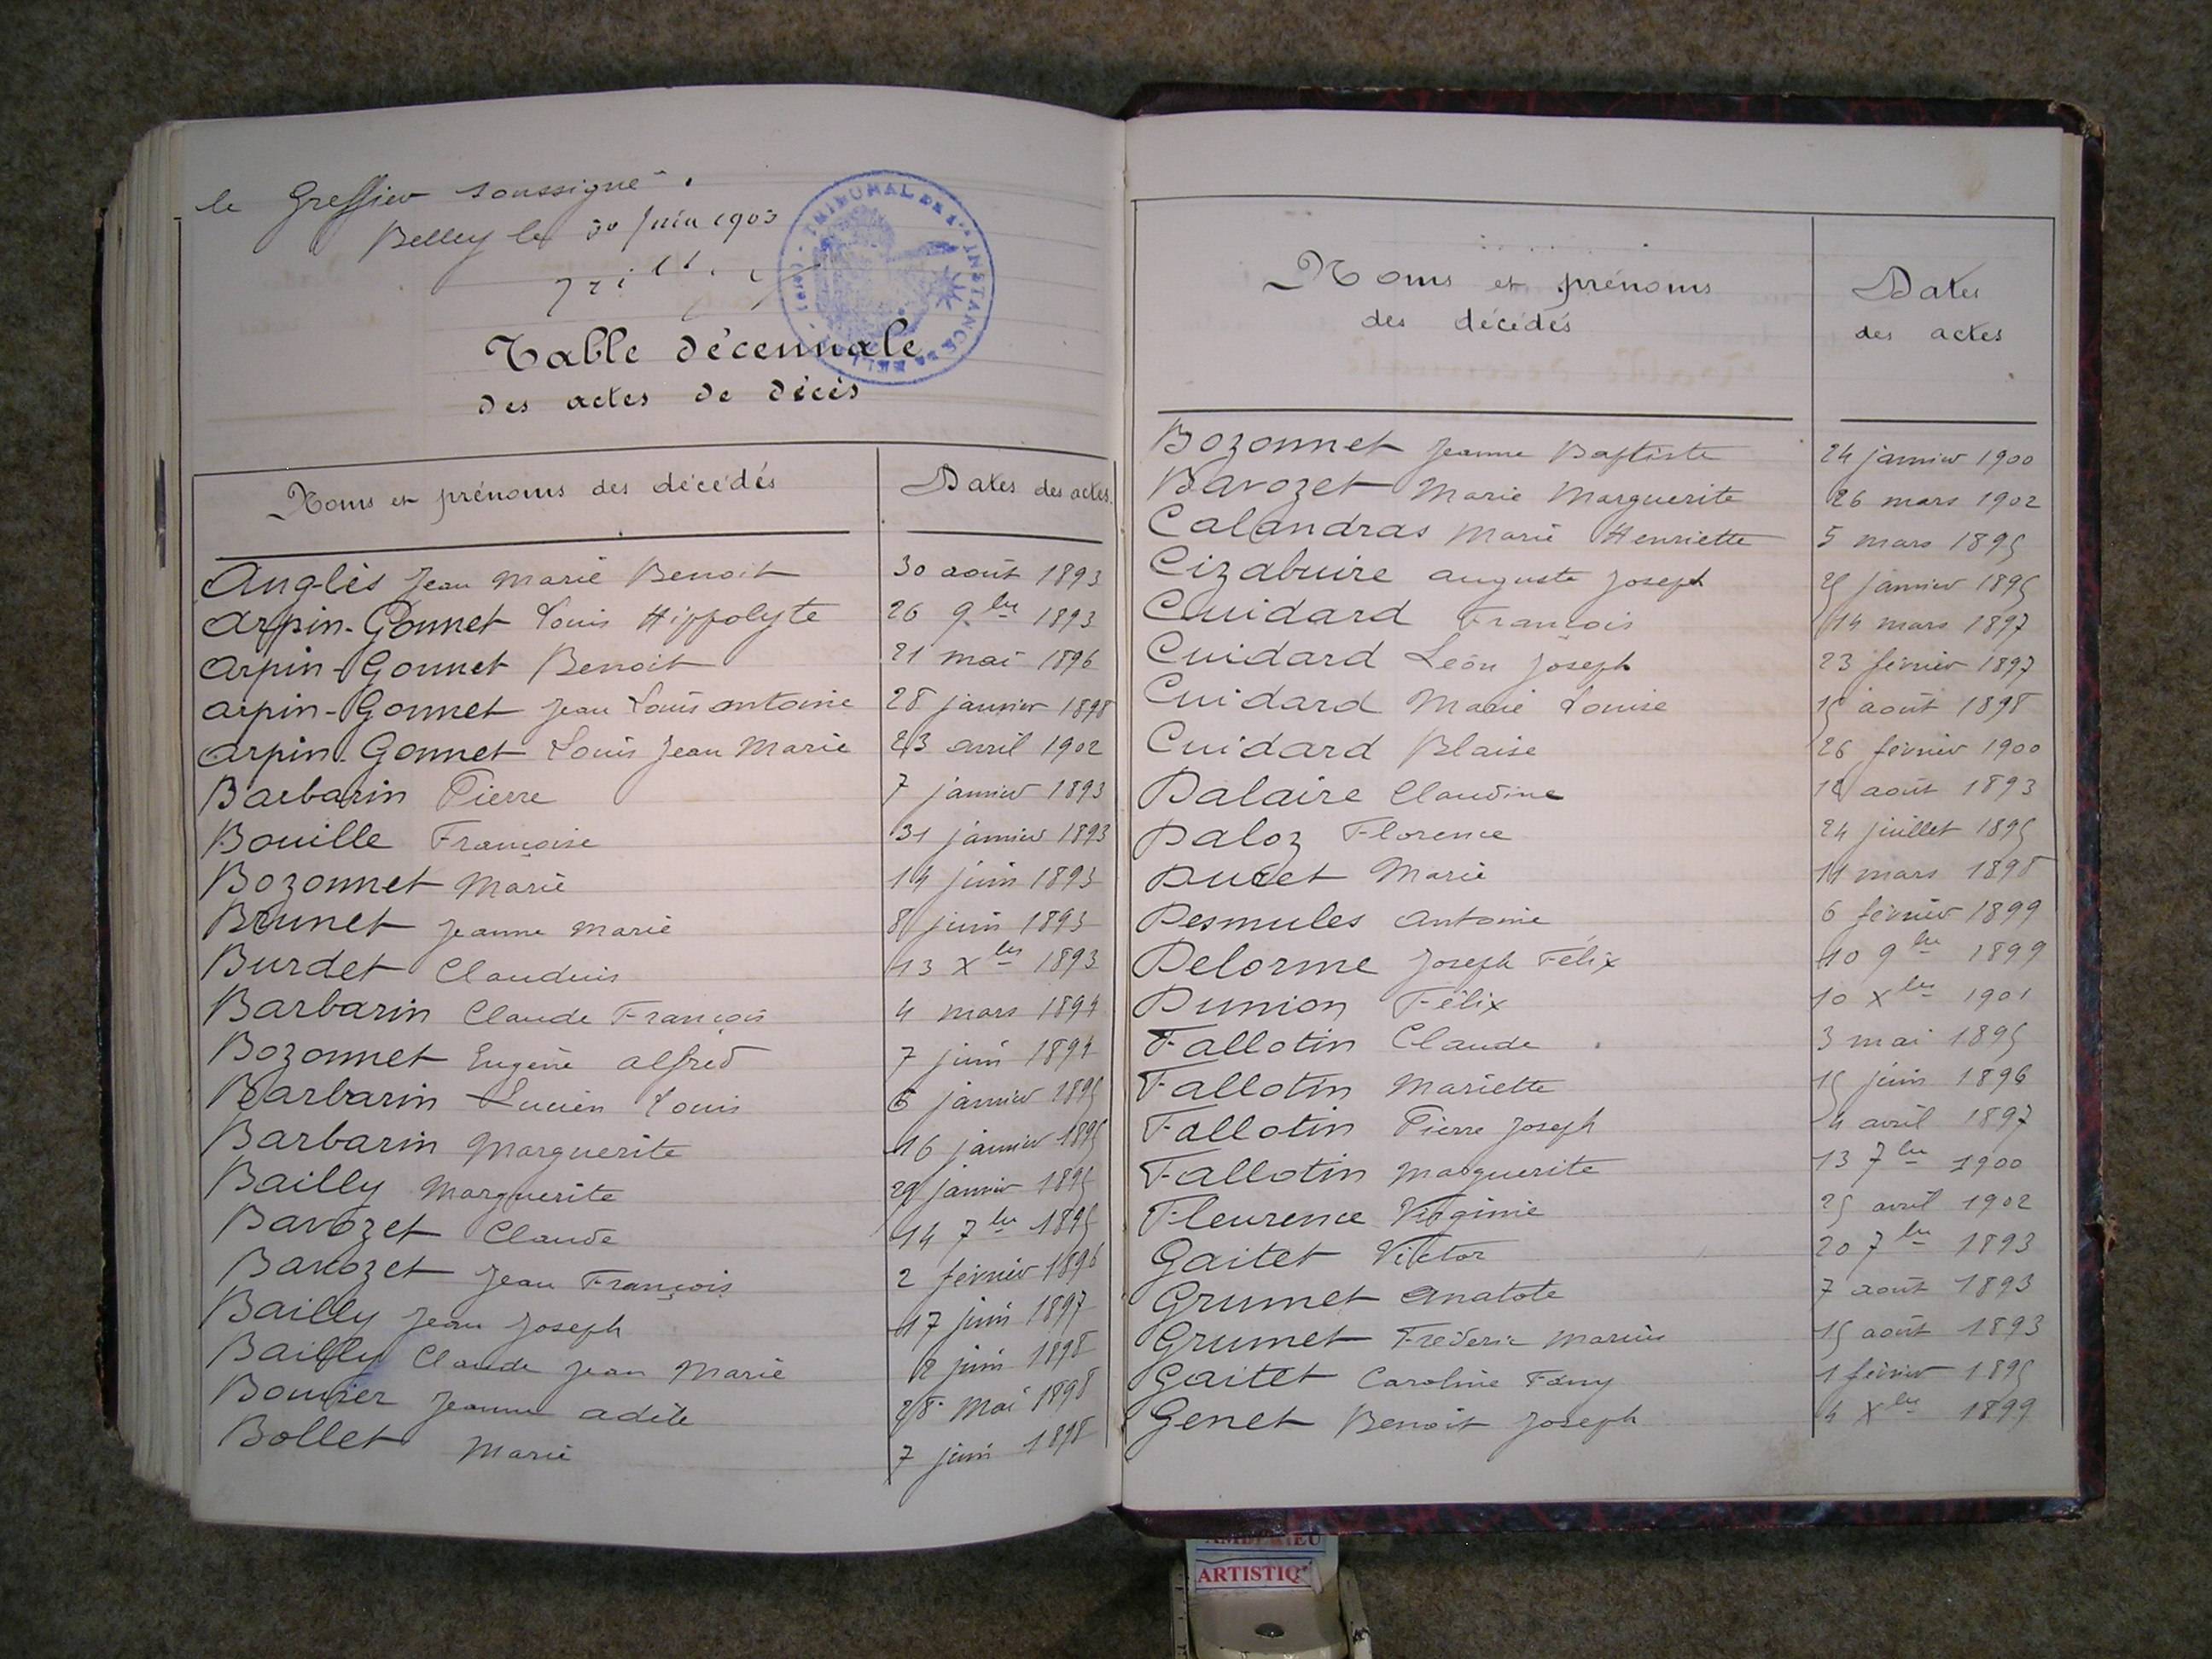 le Greffier soussigné.
Belley le 30 Juin 1903
TRIBUNAL DE 1re INSTANCE DE BELLEY (AIN)
Table décennale
des actes de décès
Noms et prénoms des décédés Dates des actes.
Anglès Jean Marie Benoit 30 août 1893
Arpin-Gonnet Louis Hippolyte 26 9bre 1893
Arpin-Gonnet Benoit 21 mai 1896
Arpin-Gonnet Jean Louis Antoine 28 janvier 1898
Arpin-Gonnet Louis Jean Marie 23 avril 1902
Barbarin Pierre 7 janvier 1893
Bouille Françoise 31 janvier 1893
Bozonnet Marie 14 juin 1893
Brunet Jeanne Marie 8 juin 1893
Burdet Claudius 13 Xbre 1893
Barbarin Claude François 4 mars 1894
Bozonnet Eugène Alfred 7 juin 1894
Barbarin Lucien Louis 6 janvier 1895
Barbarin Marguerite 16 janvier 1895
Bailly Marguerite 29 janvier 1895
Bavozet Claude 14 7bre 1895
Bavozet Jean François 2 février 1896
Bailly Jean Joseph 17 juin 1897
Bailly Claude Jean Marie 2 juin 1898
Bouvier Jeanne Adèle 28 mai 1898
Bollet Marie 7 juin 1898
Noms et prénoms Dates
des décédés des actes
Bozonnet Jeanne Baptiste 24 janvier 1900
Bavozet Marie Marguerite 26 mars 1902
Calandras Marie Henriette 5 mars 1895
Cizabuire Auguste Joseph 25 janvier 1895
Cuidard François 14 mars 1897
Cuidard Léon Joseph 23 février 1897
Cuidard Marie Louise 15 août 1898
Cuidard Blaise 26 février 1900
Dalaire Claudine août 1893
Daloz Florence 24 juillet 1895
Ducet Marie 14 mars 1898
Desmules Antoine 6 février 1899
Delorme Joseph Félix 10 9bre 1899
Dunion Félix 10 Xbre 1901
Fallotin Claude 3 mai 1895
Fallotin Mariette 15 juin 1896
Fallotin Pierre Joseph 4 avril 1897
Fallotin Marguerite 13 7bre 1900
Fleurence Virginie 25 avril 1902
Gaitet Victor 20 7bre 1893
Grumet Anatote 7 août 1893
Grumet Frédéric Marius 15 août 1893
Gaitet Caroline Fany 1 février 1895
Genet Benoit Joseph 4 Xbre 1899
AMBERIEU
ARTISTIQ